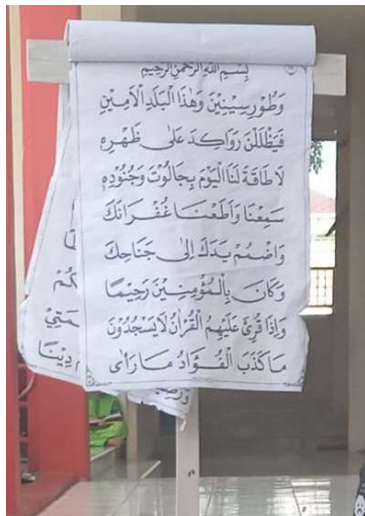 بِسْمِ اللهِ الرَّحْمٰنِ الرَّحِيْمِ
وَطُوْرِ سِيْنِيْنَ وَهٰذَا الْبَلَدِ الْاَمِيْنِ
فَيَظْلَلْنَ رَوَاكِدَ عَلٰى ظَهْرِهٖ
لَا طَاقَةَ لَنَا الْيَوْمَ بِجَالُوْتَ وَجُنُوْدِهٖ
سَمِعْنَا وَاَطَعْنَا غُفْرَانَكَ
وَاضْمُمْ يَدَكَ اِلٰى جَنَاحِكَ
وَكَانَ بِالْمُؤْمِنِيْنَ رَحِيْمًا
وَاِذَا قُرِئَ عَلَيْهِمُ الْقُرْاٰنُ لَا يَسْجُدُوْنَ
مَا كَذَبَ الْفُؤَادُ مَا رَاٰى
دِيْنًا